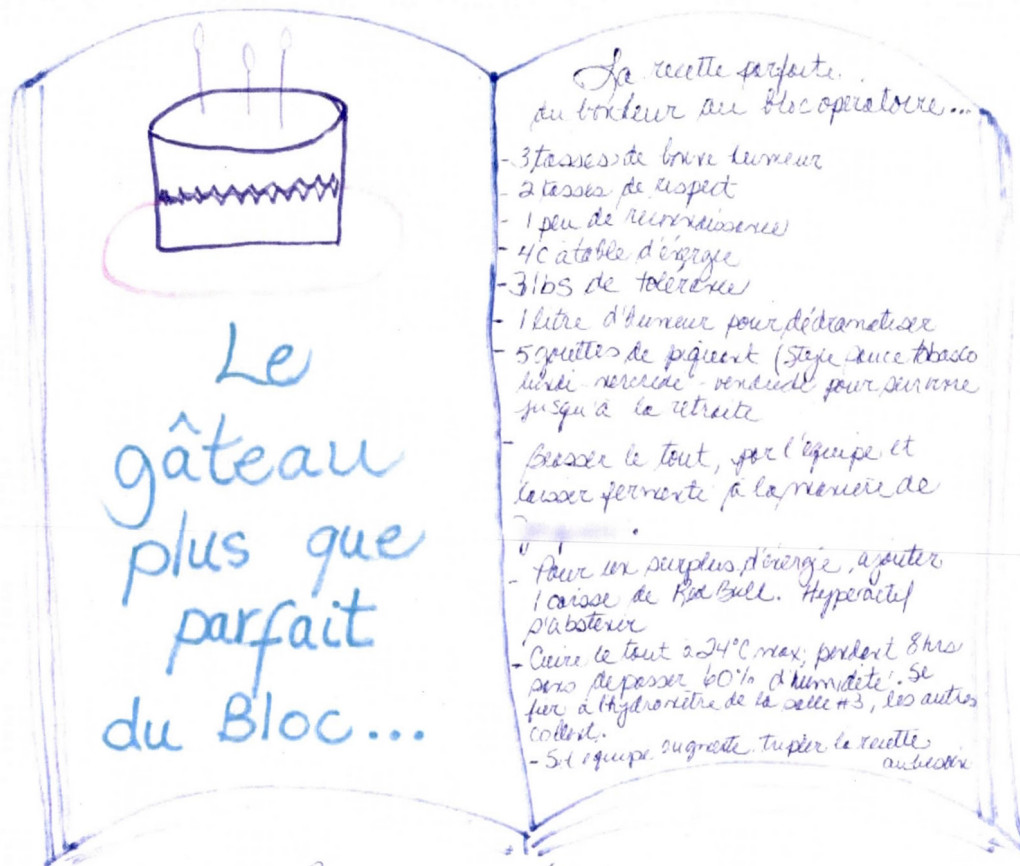 Le
gâteau
plus que
parfait
du Bloc...
La recette parfaite...
du bonheur au bloc opératoire...
- 3 tasses de bonne humeur
- 2 tasses de respect
- 1 peu de reconnaissance
- 4 c à table d'énergie
- 3 lbs de tolérance
- 1 litre d'humeur pour dédramatiser
- 5 gouttes de piquant (Style sauce tabasco
lundi - mercredi - vendredi pour survivre
jusqu'à la retraite
- Brasser le tout, par l'équipe et
laisser fermenté à la manière de
- Pour un surplus d'énergie, ajouter
1 caisse de Red Bull. Hyperactif
s'abstenir
- Cuire le tout à 24°C max, pendant 8 hrs
sans dépasser 60% d'humidité. Se
fier à l'hydromètre de la salle #3, les autres
collent.
- Si l'équipe augmente tripler la recette
au besoin